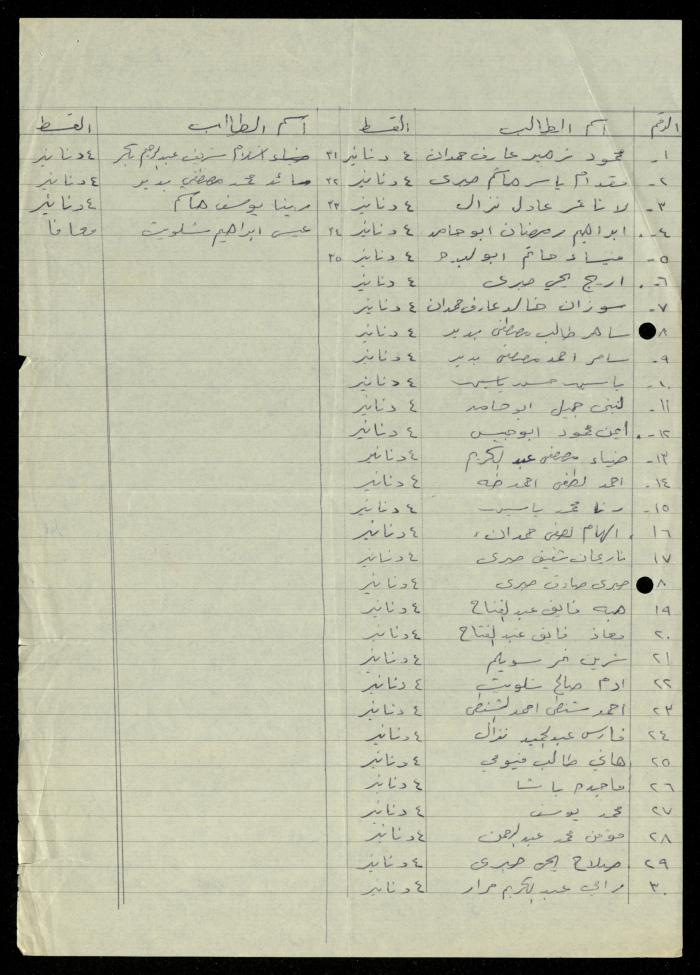 الرقم اسم الطالب القسط اسم الطالب القسط
١- محمود زهير عارف حمدان ٤ دنانير ٣١ ضياء اسلام شريف عبدالرحيم بكر ٤ دنانير
٢- مقدام ياسر هاشم صبري ٤ دنانير ٣٢ صائد محمد مصطفى بدير ٤ دنانير
٣- لانا عمر عادل نزال ٤ دنانير ٣٣ دينا يوسف هاشم ٤ دنانير
٤- ابراهيم رمضان ابو حامد ٤ دنانير ٣٤ عيسى ابراهيم شلويت معافا
٥- ميساء حاتم ابو لبده ٤ دنانير ٣٥
٦- اريج يحي صبري ٤ دنانير
٧- سوزان خالد عارف حمدان ٤ دنانير
٨ ساهر طالب مصطفى بدير ٤ دنانير
٩- سامر احمد مصطفى بدير ٤ دنانير
١٠- ياسين حسن ياسين ٤ دنانير
١١- لبنى جميل ابو حامد ٤ دنانير
١٢- ايمن محمود ابو حبيس ٤ دنانير
١٣- ضياء مصطفى عبد الكريم ٤ دنانير
١٤- احمد لطفي احمد طه ٤ دنانير
١٥- رنا محمد ياسين ٤ دنانير
١٦ الهام لطفي حمدان ٤ دنانير
١٧ ناريمان شفيق صبري ٤ دنانير
٨ صبري صادق صبري ٤ دنانير
١٩ هبه فايق عبد الفتاح ٤ دنانير
٢٠ معاذ فايق عبد الفتاح ٤ دنانير
٢١ شرين عمر سويلم ٤ دنانير
٢٢ ادم صالح شلويت ٤ دنانير
٢٣ احمد شنطي احمد الشنطي ٤ دنانير
٢٤ فارس عبد المجيد نزال ٤ دنانير
٢٥ هاني طالب فيومي ٤ دنانير
٢٦ ماجده باشا ٤ دنانير
٢٧ محمد يوسف ٤ دنانير
٢٨ مؤمن محمد عبد الرحمن ٤ دنانير
٢٩ صلاح يحي صبري ٤ دنانير
٣٠ رامي عبد الكريم مراد ٤ دنانير